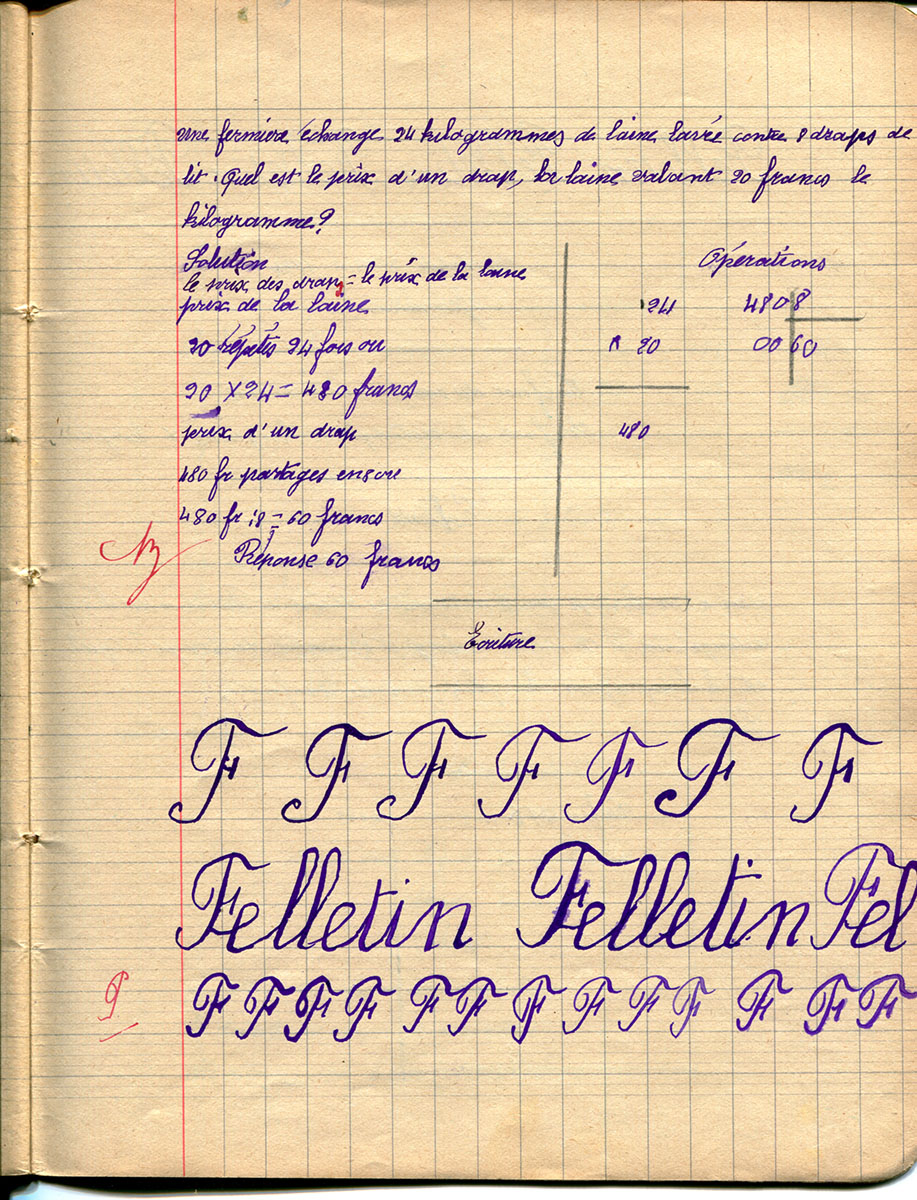 Une fermière échange 24 kilogrammes de laine lavée contre 8 draps de
lit. Quel est le prix d'un drap, la laine valant 20 francs le
kilogramme?
Solution
le prix des draps = le prix de la laine
prix de la laine
20 répétés 24 fois ou
20 X 24 = 480 francs
prix d'un drap
480 fr partages en 8 ou
480 fr : 8 = 60 francs
Réponse 60 francs
Opérations
24
20
480
480 8
00 60
Ecriture
F F F F F F F
Felletin Felletin Fel
F F F F F F F F F F F F F